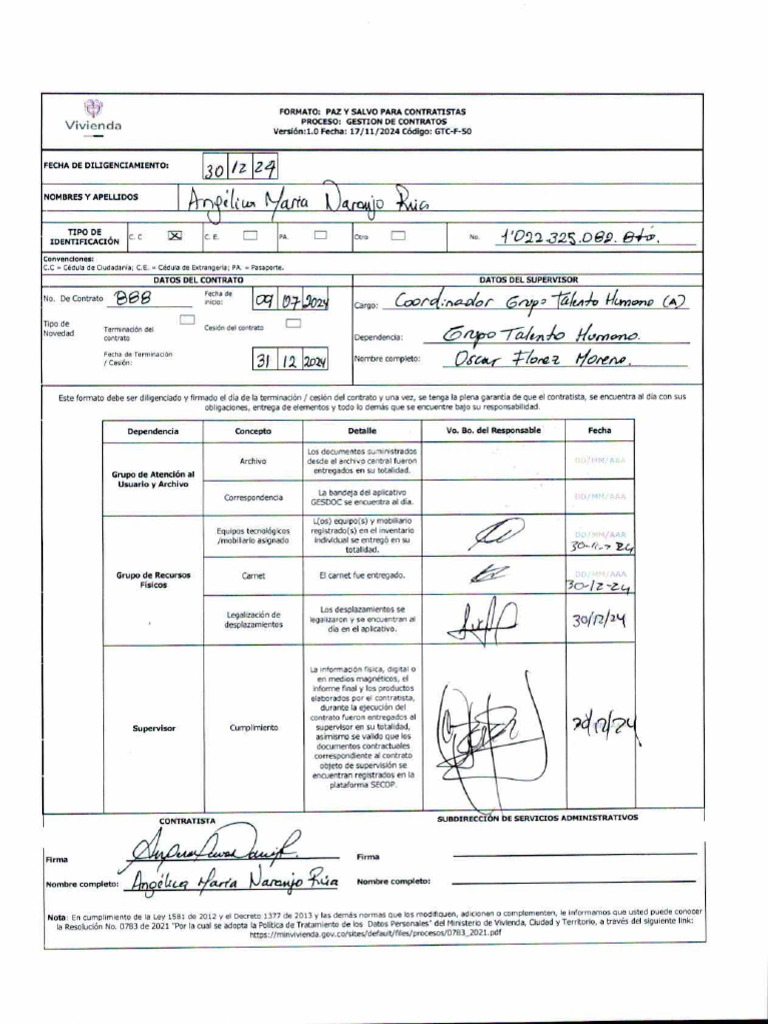 Vivienda
FORMATO: PAZ Y SALVO PARA CONTRATISTAS
PROCESO: GESTION DE CONTRATOS
Versión:1.0 Fecha: 17/11/2024 Código: GTC-F-50
FECHA DE DILIGENCIAMIENTO: 30 12 24
NOMBRES Y APELLIDOS Angélica María Naranjo Rica
TIPO DE IDENTIFICACIÓN C. C X C. E. PA. Otro No. 1'022.325.082. Bta.
Convenciones:
C.C = Cédula de Ciudadanía; C.E. = Cédula de Extranjería; PA. = Pasaporte.
DATOS DEL CONTRATO DATOS DEL SUPERVISOR
No. De Contrato 888 Fecha de inicio: 09 07 2024 Cargo: Coordinador Grupo Talento Humano (A)
Tipo de Novedad Terminación del contrato Cesión del contrato Dependencia: Grupo Talento Humano.
Fecha de Terminación / Cesión: 31 12 2024 Nombre completo: Oscar Florez Moreno.
Este formato debe ser diligenciado y firmado el día de la terminación / cesión del contrato y una vez, se tenga la plena garantía de que el contratista, se encuentra al día con sus
obligaciones, entrega de elementos y todo lo demás que se encuentre bajo su responsabilidad.
Dependencia Concepto Detalle Vo. Bo. del Responsable Fecha
Grupo de Atención al
Usuario y Archivo
Archivo
Los documentos suministrados
desde el archivo central fueron
entregados en su totalidad.
DD/MM/AAA
Correspondencia
La bandeja del aplicativo
GESDOC se encuentra al día.
DD/MM/AAA
Grupo de Recursos
Físicos
Equipos tecnológicos
/mobiliario asignado
L(os) equipo(s) y mobiliario
registrado(s) en el inventario
individual se entregó en su
totalidad.
DD/MM/AAA
Carnet
El carnet fue entregado.
DD/MM/AAA
30-12-24
Legalización de
desplazamientos
Los desplazamientos se
legalizaron y se encuentran al
día en el aplicativo.
30/12/24
Supervisor
Cumplimiento
La información física, digital o
en medios magnéticos, el
informe final y los productos
elaborados por el contratista,
durante la ejecución del
contrato fueron entregados al
supervisor en su totalidad,
asimismo se valido que los
documentos contractuales
correspondiente al contrato
objeto de supervisión se
encuentran registrados en la
plataforma SECOP.
30/12/24
CONTRATISTA SUBDIRECCIÓN DE SERVICIOS ADMINISTRATIVOS
Firma Firma
Nombre completo: Angélica María Naranjo Rica Nombre completo:
Nota: En cumplimiento de la Ley 1581 de 2012 y el Decreto 1377 de 2013 y las demás normas que los modifiquen, adicionen o complementen, le informamos que usted puede conocer
la Resolución No. 0783 de 2021 "Por la cual se adopta la Política de Tratamiento de los Datos Personales" del Ministerio de Vivienda, Ciudad y Territorio, a través del siguiente link:
https://minvivienda.gov.co/sites/default/files/procesos/0783_2021.pdf